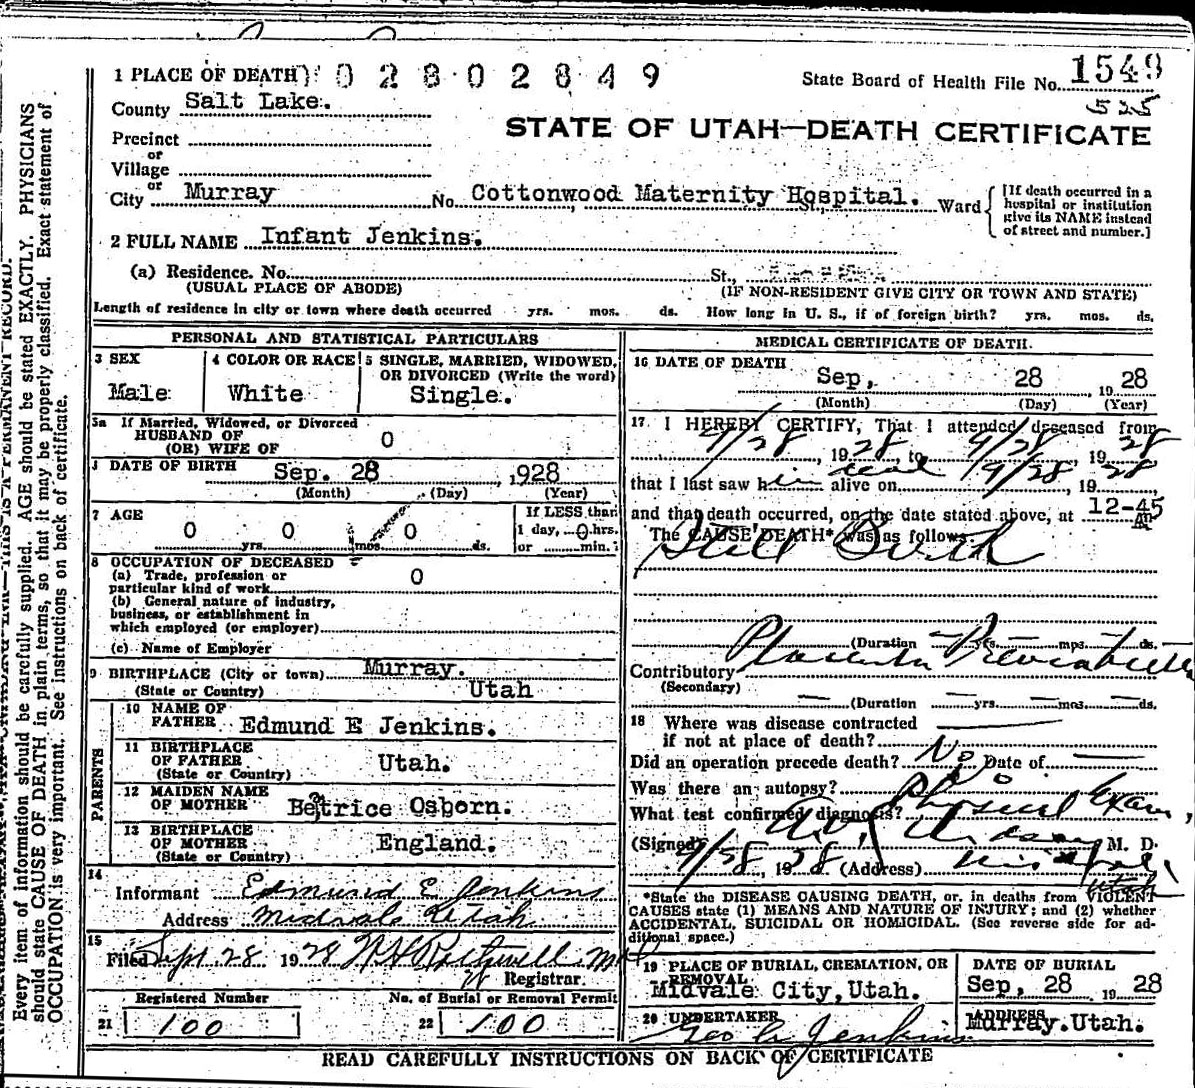 1 PLACE OF DEATH 02802849
State Board of Health File No. 1549
County Salt Lake.
525
STATE OF UTAH—DEATH CERTIFICATE
Precinct
or
Village
or
City Murray No. Cottonwood Maternity Hospital. St., Ward
[If death occurred in a
hospital or institution
give its NAME instead
of street and number.]
2 FULL NAME Infant Jenkins.
(a) Residence. No. St.,
(USUAL PLACE OF ABODE) (IF NON-RESIDENT GIVE CITY OR TOWN AND STATE)
Length of residence in city or town where death occurred yrs. mos. ds. How long in U. S., if of foreign birth? yrs. mos. ds.
PERSONAL AND STATISTICAL PARTICULARS
3 SEX
Male
4 COLOR OR RACE
White
5 SINGLE, MARRIED, WIDOWED,
OR DIVORCED (Write the word)
Single.
5a If Married, Widowed, or Divorced
HUSBAND OF
(OR) WIFE OF 0
DATE OF BIRTH
Sep. 28 , 1928
(Month) (Day) (Year)
7 AGE
0 yrs. 0 mos. 0 ds.
If LESS than
1 day, 0 hrs.
or min.
8 OCCUPATION OF DECEASED
(a) Trade, profession or
particular kind of work 0
(b) General nature of industry,
business, or establishment in
which employed (or employer)
(c) Name of Employer
9 BIRTHPLACE (City or town) Murray.
(State or Country) Utah
PARENTS
10 NAME OF
FATHER Edmund E Jenkins.
11 BIRTHPLACE
OF FATHER Utah.
(State or Country)
12 MAIDEN NAME
OF MOTHER Beatrice Osborn.
13 BIRTHPLACE
OF MOTHER England.
(State or Country)
14
Informant Edmund E Jenkins
Address Midvale Utah
15
Filed Sept 28 1928
Registrar.
Registered Number
21 100
No. of Burial or Removal Permit
22 100
MEDICAL CERTIFICATE OF DEATH.
16 DATE OF DEATH
Sep, 28 1928
(Month) (Day) (Year)
17 I HEREBY CERTIFY, That I attended deceased from
9/28, 1928, to 9/28, 1928
that I last saw him alive on 9/28, 1928
and that death occurred, on the date stated above, at 12-45
The CAUSE OF DEATH* was as follows:
Still Birth
(Duration yrs. mos. ds.
Contributory Placenta
(Secondary)
(Duration yrs. mos. ds.
18 Where was disease contracted
if not at place of death?
Did an operation precede death? No Date of
Was there an autopsy? No
What test confirmed diagnosis? Physical Exam,
(Signed) M. D.
9/28, 1928 (Address) Midvale Utah
*State the DISEASE CAUSING DEATH, or, in deaths from VIOLENT
CAUSES state (1) MEANS AND NATURE OF INJURY; and (2) whether
ACCIDENTAL, SUICIDAL OR HOMICIDAL. (See reverse side for ad-
ditional space.)
19 PLACE OF BURIAL, CREMATION, OR
REMOVAL
Midvale City, Utah.
DATE OF BURIAL
Sep, 28 1928
20 UNDERTAKER
Jenkins
ADDRESS
Murray. Utah.
READ CAREFULLY INSTRUCTIONS ON BACK OF CERTIFICATE
THIS IS A PERMANENT RECORD.
Every item of information should be carefully supplied. AGE should be stated EXACTLY. PHYSICIANS
should state CAUSE OF DEATH in plain terms, so that it may be properly classified. Exact statement of
OCCUPATION is very important. See instructions on back of certificate.